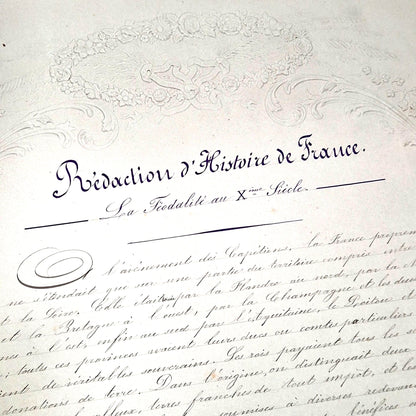 Rédaction d'Histoire de France.
La Féodalité au Xème Siècle.
A l'avènement des Capétiens, la France proprem
ne s'étendait que sur une partie du territoire compris entre
et la Loire. Elle était par la Flandre au nord, par la
et la Bretagne à l'ouest, par la Champagne et les duc
à l'est enfin au sud par l'Aquitaine, le Poitou et
toutes ces provinces avaient leurs ducs ou comtes particuliers
de véritables souverains. Les rois payaient tous les
donations de terre. Dans l'origine, on distinguait deux
alleux, terres franches de tout impôt, et les
soumises à diverses redevan
bénéfices